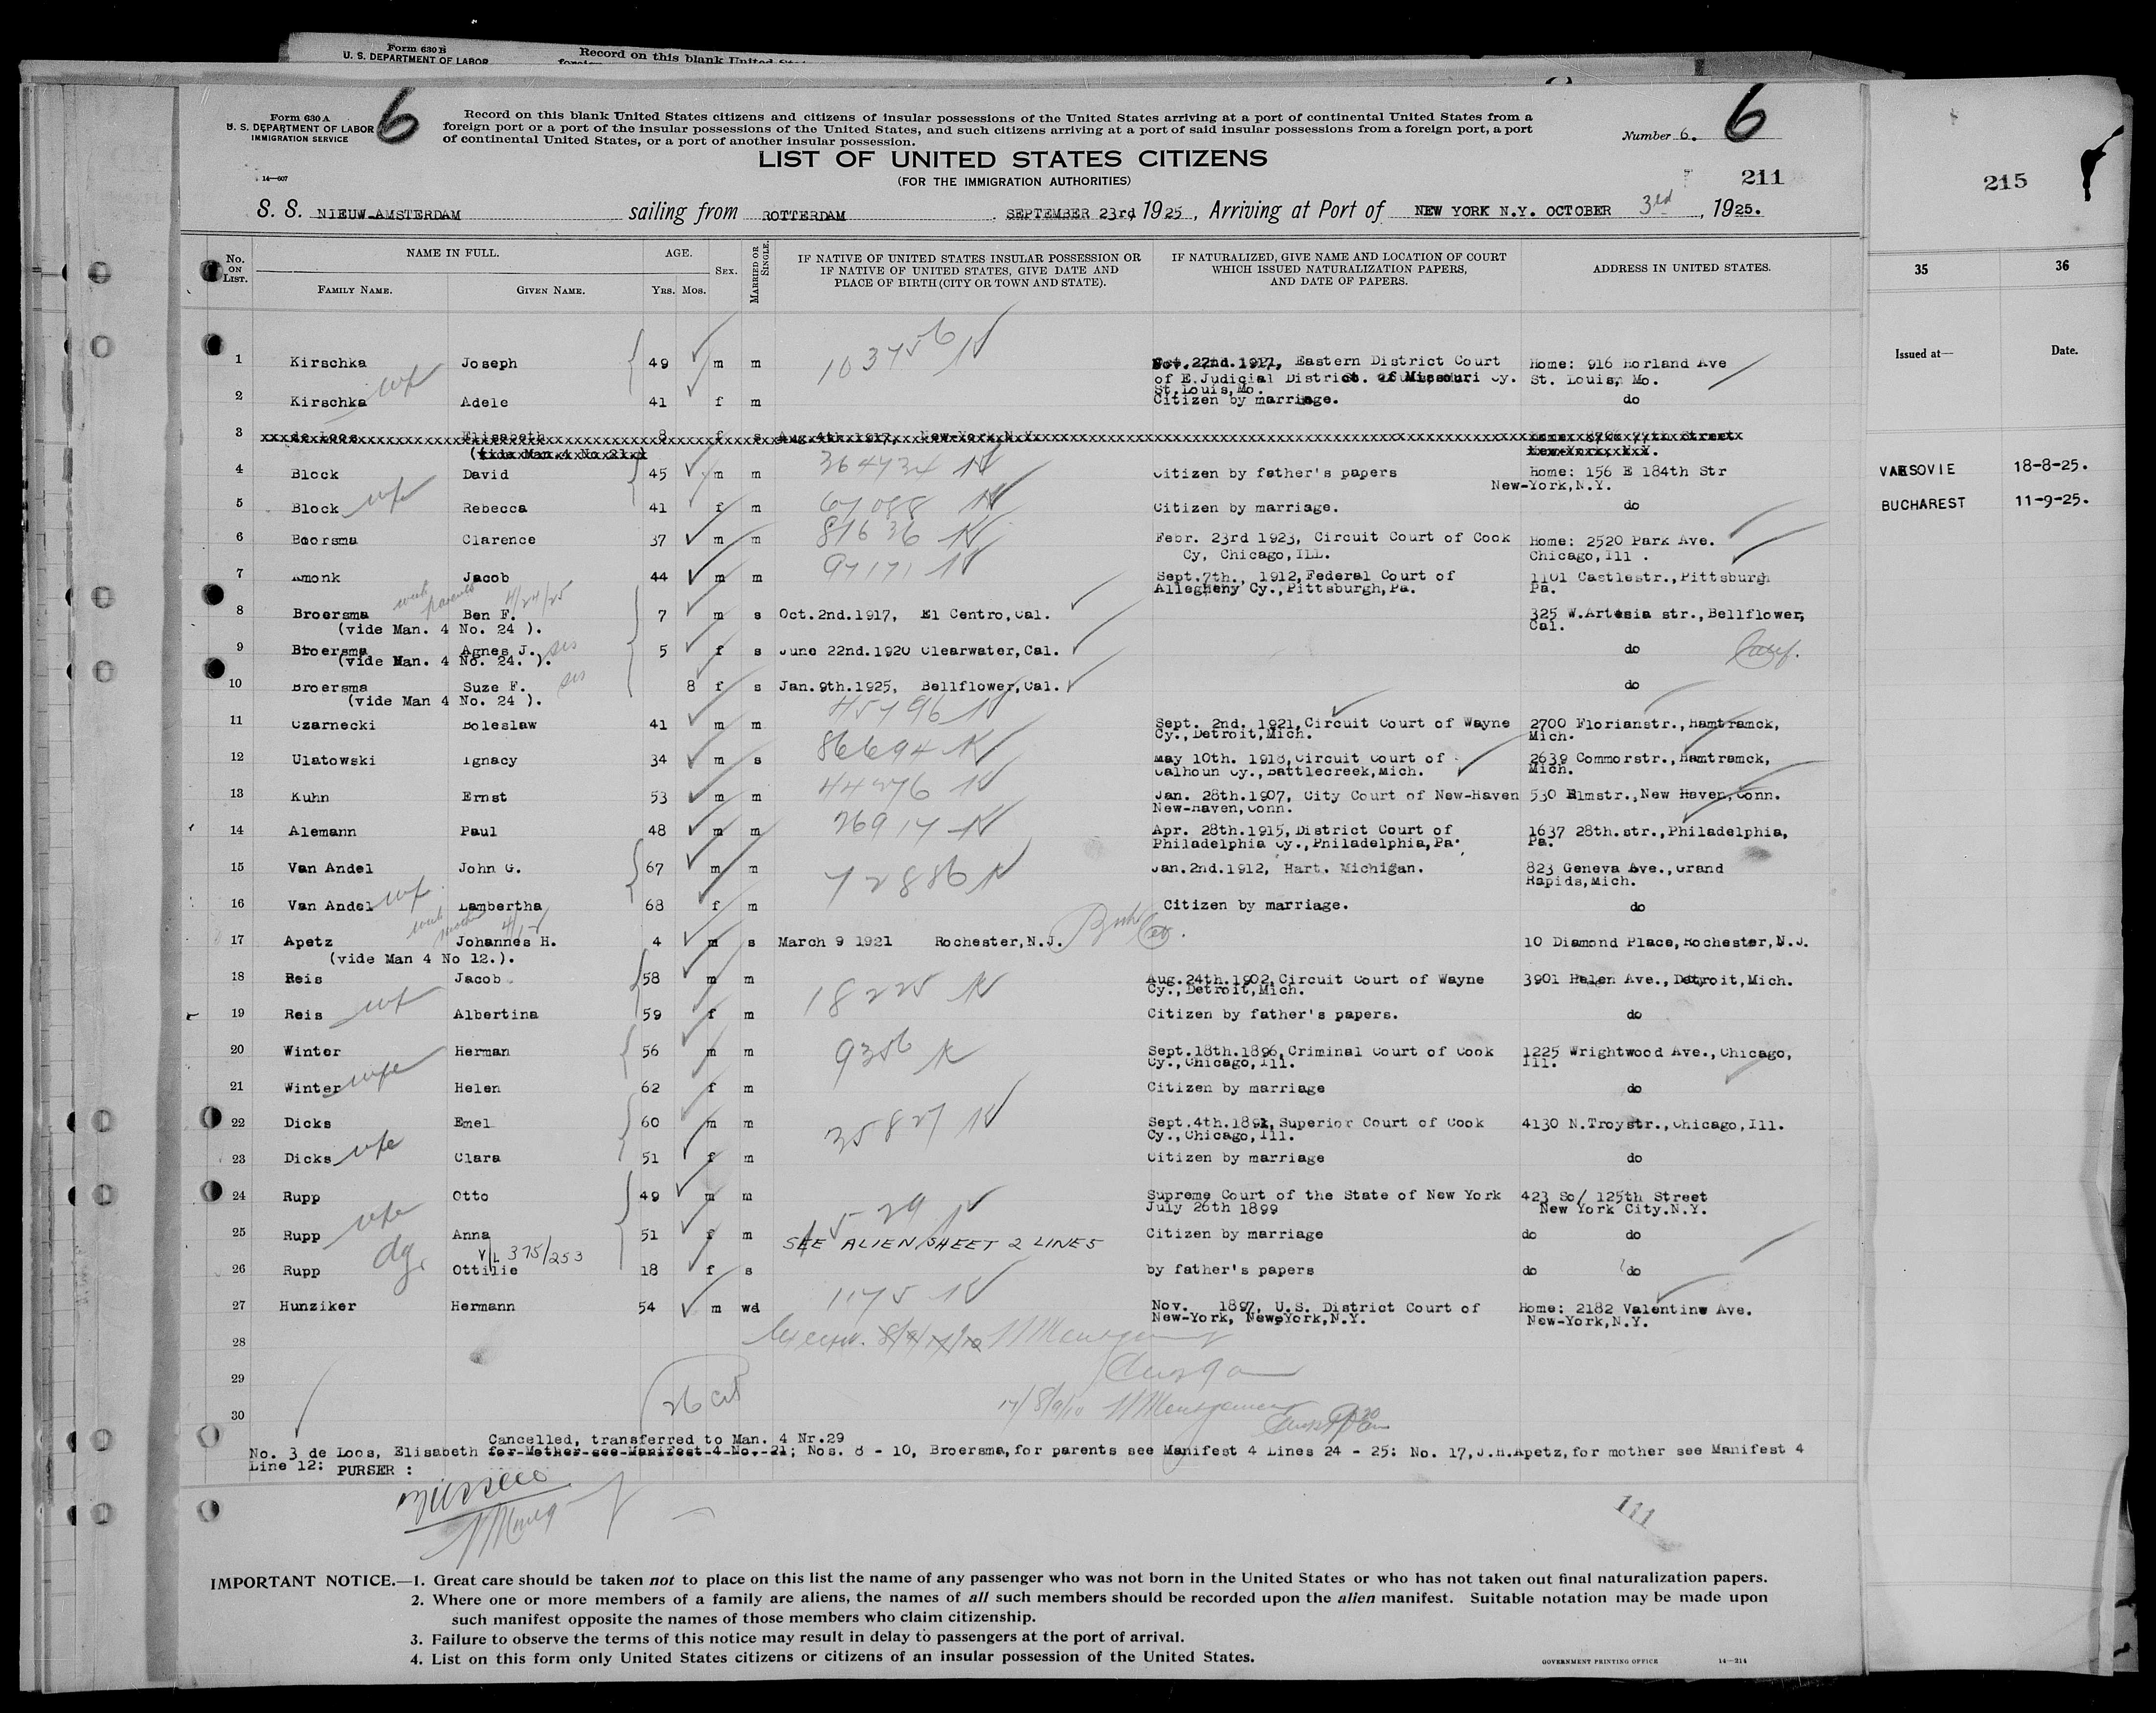 Form 630 B
U. S. DEPARTMENT OF LABOR
Record on this blank United
Form 630 A
U. S. DEPARTMENT OF LABOR
IMMIGRATION SERVICE
6
Record on this blank United States citizens and citizens of insular possessions of the United States arriving at a port of continental United States from a
foreign port or a port of the insular possessions of the United States, and such citizens arriving at a port of said insular possessions from a foreign port, a port
of continental United States, or a port of another insular possession.
Number 6.
6
LIST OF UNITED STATES CITIZENS
(FOR THE IMMIGRATION AUTHORITIES)
14—607
211
215
S. S. NIEUW-AMSTERDAM sailing from ROTTERDAM . SEPTEMBER 23rd 1925, Arriving at Port of NEW YORK N.Y. OCTOBER 3rd, 1925.
No. ON LIST.
NAME IN FULL.
FAMILY NAME.
GIVEN NAME.
AGE.
YRS. MOS.
SEX.
MARRIED OR SINGLE.
IF NATIVE OF UNITED STATES INSULAR POSSESSION OR
IF NATIVE OF UNITED STATES, GIVE DATE AND
PLACE OF BIRTH (CITY OR TOWN AND STATE).
IF NATURALIZED, GIVE NAME AND LOCATION OF COURT
WHICH ISSUED NATURALIZATION PAPERS,
AND DATE OF PAPERS.
ADDRESS IN UNITED STATES.
35
36
Issued at—
Date.
103756 N
1 Kirschka Joseph 49 m m 22nd.1921, Eastern District Court Home: 916 Horland Ave
of E.Judicial District of Missouri Cy. St. Louis, Mo.
St.Louis,Mo.
wf
2 Kirschka Adele 41 f m Citizen by marriage. do
3 de Loos Elisabeth 8 f s Aug.4th.1917, New-York,N.Y.
(vide Man.4 No 21.)
New-York, N.Y.
4 Block David 45 m m 364734 N Citizen by father's papers Home: 156 E 184th Str VARSOVIE 18-8-25.
New-York,N.Y.
5 Block wife Rebecca 41 f m 67088 N Citizen by marriage. do BUCHAREST 11-9-25.
6 Boorsma Clarence 37 m m 81636 N Febr. 23rd 1923, Circuit Court of Cook Home: 2520 Park Ave.
Cy, Chicago,ILL. Chicago,Ill .
7 Amonk Jacob 44 m m 97171 N Sept.7th., 1912,Federal Court of 1101 Castlestr.,Pittsburgh
Allegheny Cy.,Pittsburgh,Pa. Pa.
with parents 4/24/25
8 Broersma Ben F. 7 m s Oct.2nd.1917, El Centro,Cal. 325 W.Artesia str.,Bellflower,
(vide Man. 4 No. 24 ). Cal.
9 Broersma Agnes J. sis 5 f s June 22nd.1920 Clearwater,Cal. do Calif.
(vide Man. 4 No. 24. ).
10 Broersma Suze F. sis 8 f s Jan.9th.1925, Bellflower,Cal. do
(vide Man 4 No. 24 ).
11 Czarnecki Boleslaw 41 m m 45796 N Sept. 2nd. 1921,Circuit Court of Wayne 2700 Florianstr.,Hamtramck,
Cy.,Detroit,Mich. Mich.
12 Ulatowski Ignacy 34 m s 86694 N May 10th. 1918,Circuit Court of 2639 Commorstr.,Hamtramck,
Calhoun Cy.,Battlecreek,Mich. Mich.
13 Kuhn Ernst 53 m m 44276 N Jan. 28th.1907, City Court of New-Haven 530 Elmstr.,New Haven,Conn.
New-Haven,Conn.
14 Alemann Paul 48 m m 26917 N Apr. 28th.1915,District Court of 1637 28th.str.,Philadelphia,
Philadelphia Cy.,Philadelphia,Pa. Pa.
15 Van Andel John G. 67 m m 72886 N Jan.2nd.1912, Hart. Michigan. 823 Geneva Ave.,Grand
Rapids,Mich.
16 Van Andel wf Lambertha 68 f m Citizen by marriage. do
with mother 4/12
17 Apetz Johannes H. 4 m s March 9 1921 Rochester,N.J. 10 Diamond Place,Rochester,N.J.
(vide Man 4 No 12.).
18 Reis Jacob 58 m m 18225 N Aug.24th.1902,Circuit Court of Wayne 3901 Helen Ave.,Detroit,Mich.
Cy.,Detroit,Mich.
19 Reis wf Albertina 59 f m Citizen by father's papers. do
20 Winter Herman 56 m m 9356 N Sept.18th.1896,Criminal Court of Cook 1225 Wrightwood Ave.,Chicago,
Cy.,Chicago,Ill. Ill.
21 Winter wife Helen 62 f m Citizen by marriage do
22 Dicks Emel 60 m m 35827 N Sept.4th.1891,Superior Court of Cook 4130 N.Troystr.,Chicago,Ill.
Cy.,Chicago,Ill.
23 Dicks wife Clara 51 f m Citizen by marriage do
24 Rupp Otto 49 m m Supreme Court of the State of New York 423 So/ 125th Street
July 26th 1899 New York City.N.Y.
1529 N
25 Rupp wife Anna 51 f m SEE ALIEN SHEET 2 LINE 5 Citizen by marriage do do
dg. V/L 375/253
26 Rupp Ottilie 18 f s by father's papers do do
27 Hunziker Hermann 54 m wd 1175 N Nov. 1897, U.S. District Court of Home: 2182 Valentine Ave.
New-York, New-York,N.Y. New-York,N.Y.
28
29
26 cit
30
Cancelled, transferred to Man. 4 Nr.29
No. 3 de Loos, Elisabeth for Mother see Manifest 4 No. 21; Nos. 8 - 10, Broersma,for parents see Manifest 4 Lines 24 - 25: No. 17,J.H.Apetz,for mother see Manifest 4
Line 12: PURSER :
111
IMPORTANT NOTICE.—1. Great care should be taken not to place on this list the name of any passenger who was not born in the United States or who has not taken out final naturalization papers.
2. Where one or more members of a family are aliens, the names of all such members should be recorded upon the alien manifest. Suitable notation may be made upon
such manifest opposite the names of those members who claim citizenship.
3. Failure to observe the terms of this notice may result in delay to passengers at the port of arrival.
4. List on this form only United States citizens or citizens of an insular possession of the United States.
GOVERNMENT PRINTING OFFICE 14—214